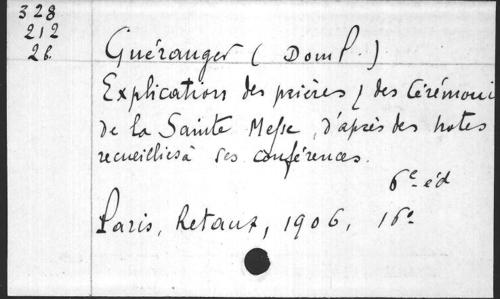 328
212
26
Guéranger (Dom P.)
Explication des prières & des Cérémoni
de la Sainte Messe, d'après des notes
recueillies à ses conférences.
6e éd
Paris, Retaux, 1906, 16o